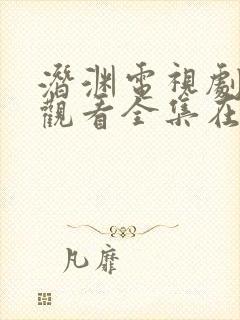 潛淵電視劇
觀看全集在
凡靡